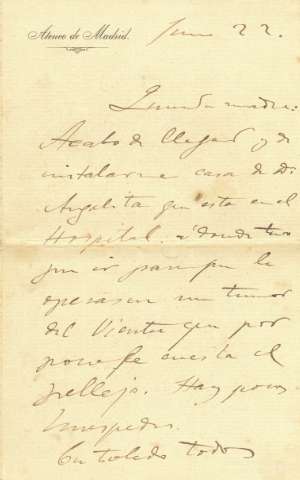 Ateneo de Madrid.
Junio 22.
Querida madre:
Acabo de llegar y de
instalarme casa de Dª
Angelita que esta en el
Hospital a donde tuvo
que ir para que le
operasen un tumor
del vientre que por
poco le cuesta el
pellejo. Hay pocos
huespedes.
En Toledo todos